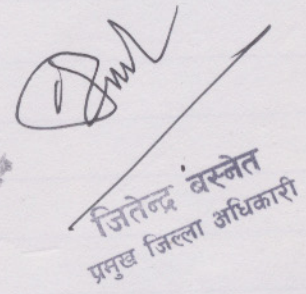 जितेन्द्र बस्नेत
प्रमुख जिल्ला अधिकारी